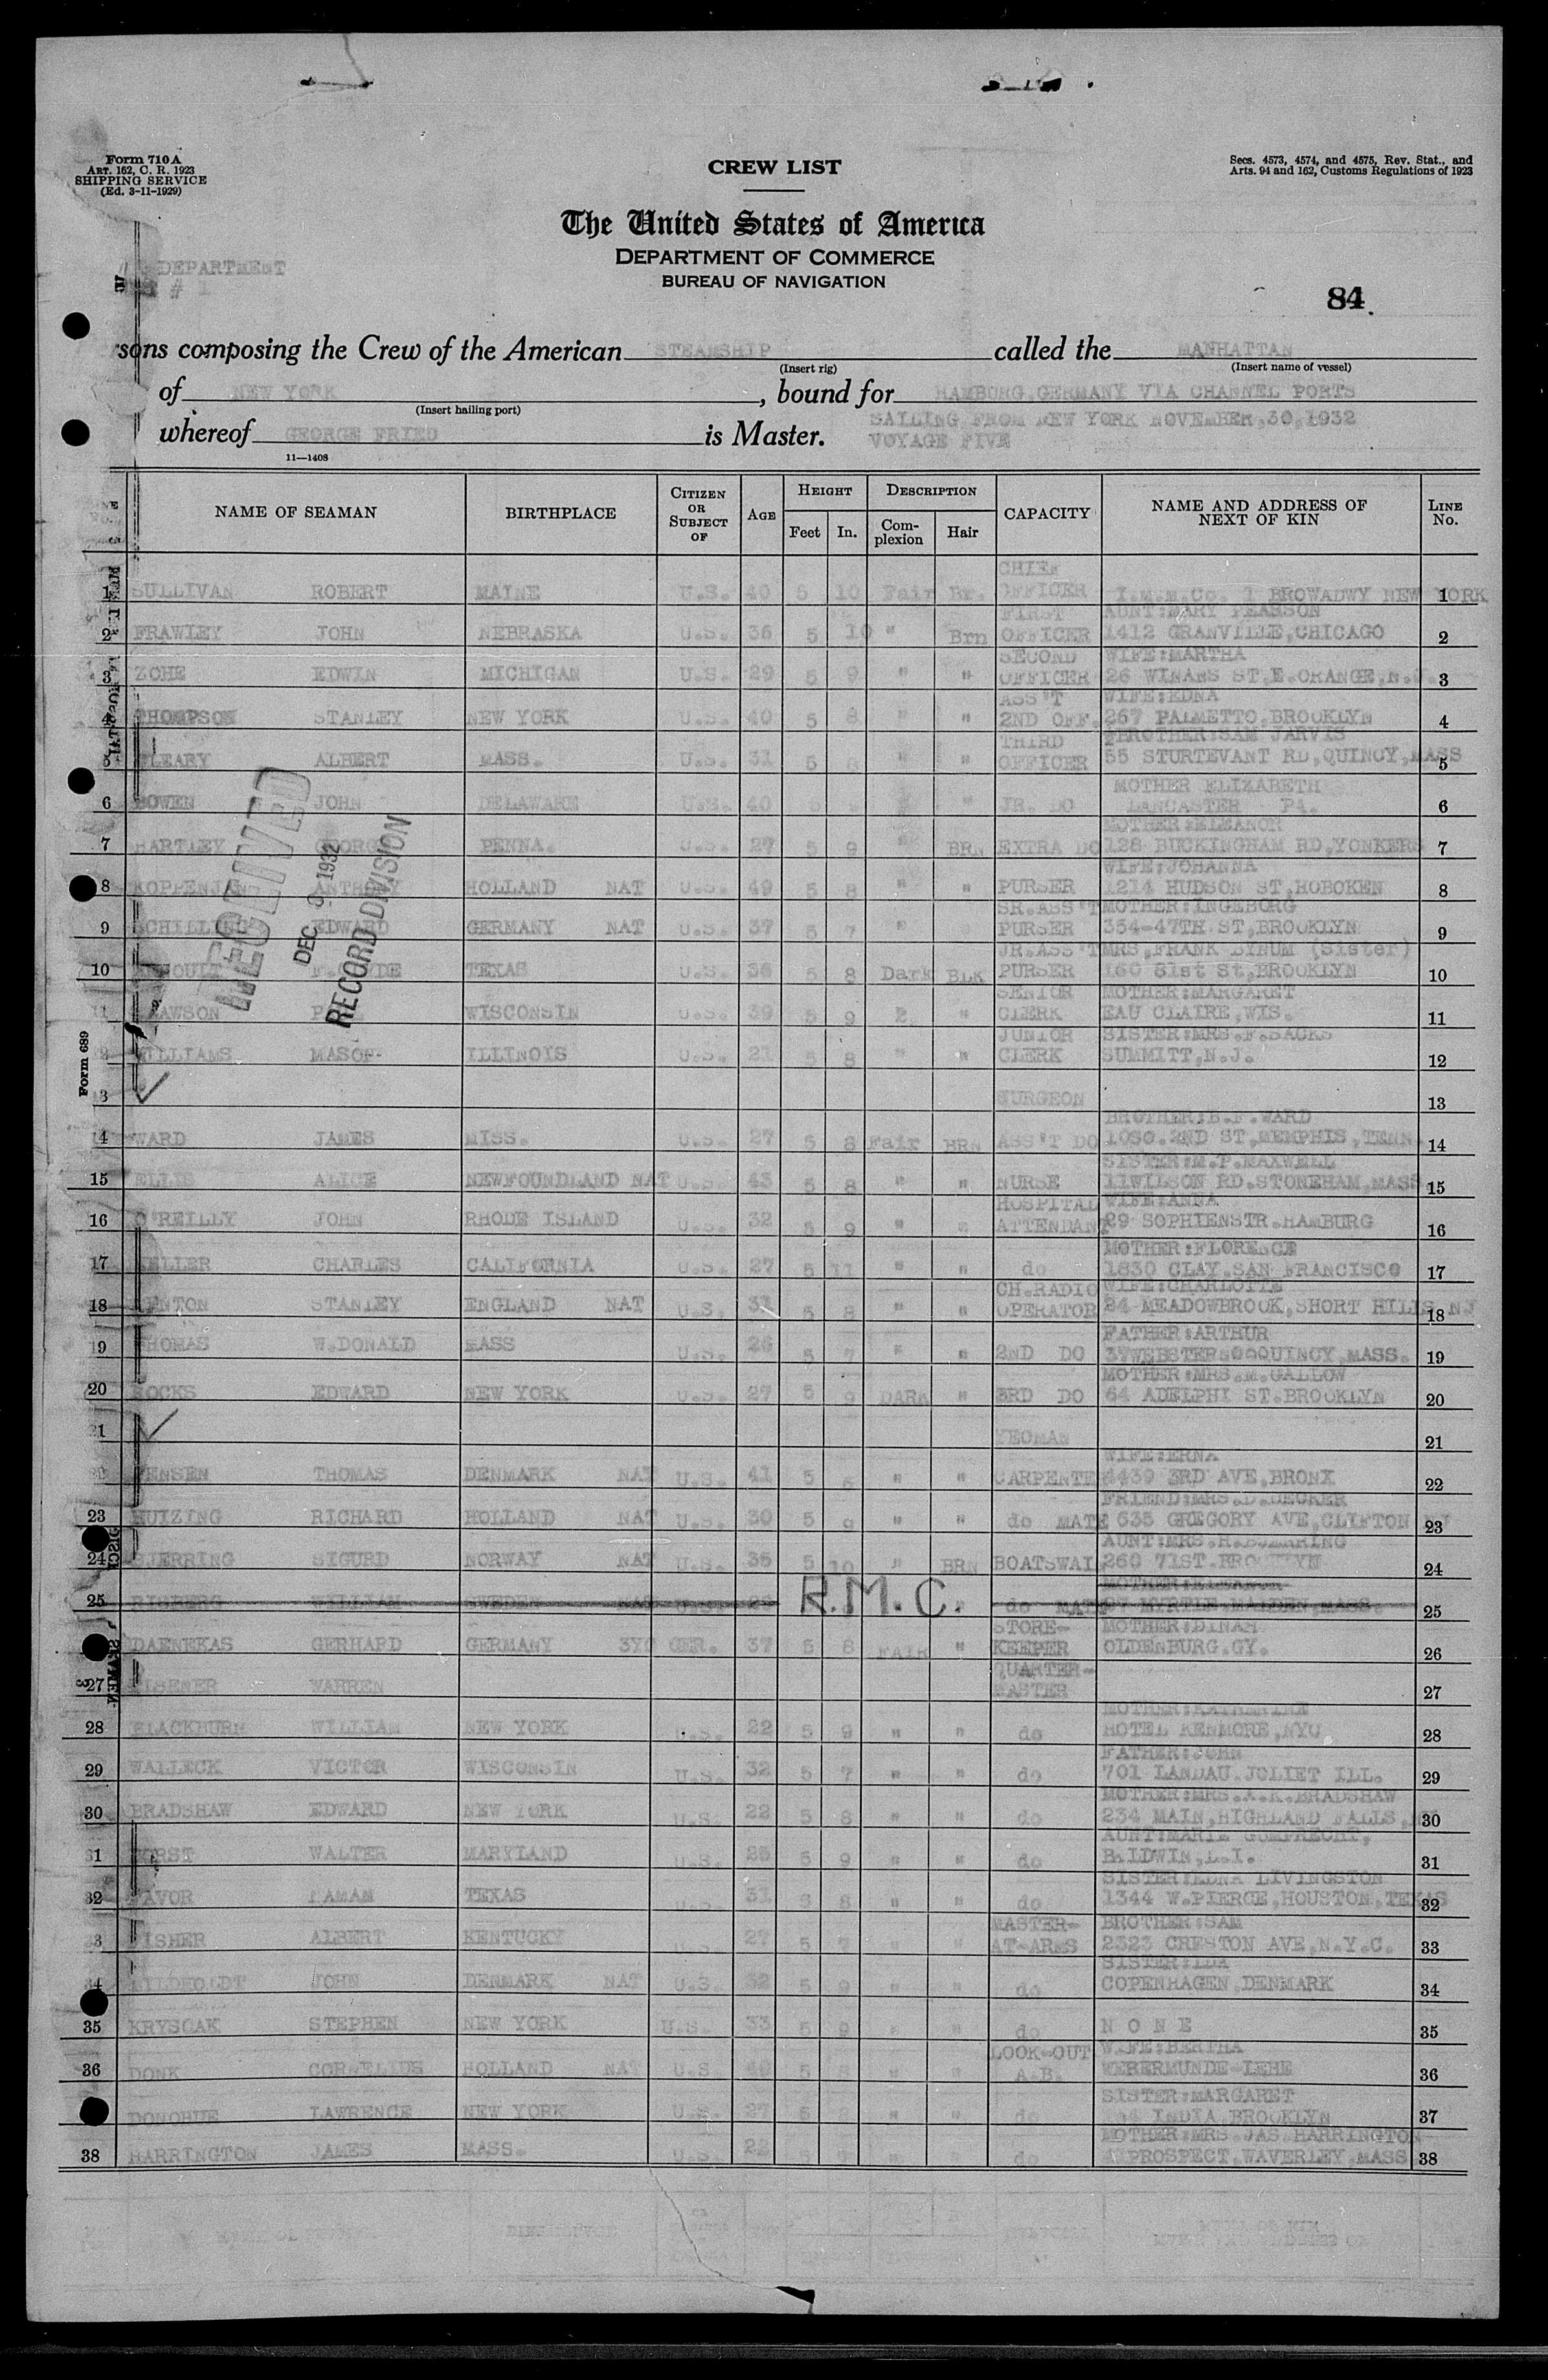 Form 710 A
ART. 162, C. R. 1923
SHIPPING SERVICE
(Ed. 3-11-1929)
CREW LIST
Secs. 4573, 4574, and 4575, Rev. Stat., and
Arts. 94 and 162, Customs Regulations of 1923
The United States of America
DEPARTMENT OF COMMERCE
BUREAU OF NAVIGATION
DEPARTMENT
# 1
84
sons composing the Crew of the American STEAMSHIP called the MANHATTAN
(Insert rig) (Insert name of vessel)
of NEW YORK, bound for HAMBURG, GERMANY VIA CHANNEL PORTS
(Insert hailing port)
SAILING FROM NEW YORK NOVEMBER, 30, 1932
whereof GEORGE FRIED is Master. VOYAGE FIVE
11—1408
NAME OF SEAMAN BIRTHPLACE CITIZEN OR SUBJECT OF AGE HEIGHT Feet In. DESCRIPTION Complexion Hair CAPACITY NAME AND ADDRESS OF NEXT OF KIN LINE No.
1 SULLIVAN ROBERT MAINE U.S. 40 5 10 Fair Br. CHIEF OFFICER I.M.M.Co. 1 BROWADWY NEW YORK 1
2 FRAWLEY JOHN NEBRASKA U.S. 36 5 10 " Brn FIRST OFFICER AUNT:MARY PEARSON 1412 GRANVILLE, CHICAGO 2
3 ZOHE EDWIN MICHIGAN U.S. 29 5 9 " " SECOND OFFICER WIFE:MARTHA 26 WINANS ST, E.ORANGE, N.J. 3
4 THOMPSON STANLEY NEW YORK U.S. 40 5 8 " " ASS'T 2ND OFF. WIFE:EDNA 267 PALMETTO, BROOKLYN 4
5 CLEARY ALBERT MASS. U.S. 31 5 " " THIRD OFFICER BROTHER:SAM JARVIS 55 STURTEVANT RD, QUINCY, MASS 5
6 BOWEN JOHN DELAWARE U.S. 40 " JR. DO MOTHER ELIZABETH LANCASTER PA. 6
7 HARTLEY GEORGE PENNA. U.S. 27 5 9 " BRN EXTRA DO MOTHER:ELEANOR 128 BUCKINGHAM RD, YONKERS 7
8 KOPPENJAN ANTHONY HOLLAND NAT U.S. 49 5 8 " " PURSER WIFE:JOHANNA 1214 HUDSON ST, HOBOKEN 8
9 SCHILLING EDWARD GERMANY NAT U.S. 37 5 7 " SR.ASS'T PURSER MOTHER:INGEBORG 354-47TH ST, BROOKLYN 9
10 TEXAS U.S. 36 5 8 Dark BLK JR.ASS'T PURSER MRS, FRANK BYNUM (Sister) 160 81st St, BROOKLYN 10
11 LAWSON WISCONSIN U.S. 39 5 9 " SENIOR CLERK MOTHER:MARGARET EAU CLAIRE, WIS. 11
WILLIAMS MASON ILLINOIS U.S. 21 5 8 " " JUNIOR CLERK SISTER:MRS.F.SACKS SUMMITT, N.J. 12
3 SURGEON 13
4 WARD JAMES MISS. U.S. 27 5 8 Fair BRN ASS'T DO BROTHER:B.F.WARD 1080.2ND ST, MEMPHIS, TENN. 14
15 ELLIS ALICE NEWFOUNDLAND NAT U.S. 43 5 8 " " NURSE SISTER:M.P.MAXWELL 11WILSON RD.STONEHAM, MASS. 15
16 O'REILLY JOHN RHODE ISLAND U.S. 32 5 9 " " HOSPITAL ATTENDANT WIFE:ANNA 29 SOPHIENSTR.HAMBURG 16
17 KELLER CHARLES CALIFORNIA U.S. 27 5 11 " " do MOTHER:FLORENCE 1830 CLAY.SAN FRANCISCO 17
18 FENTON STANLEY ENGLAND NAT U.S. 31 5 8 " " CH.RADIO OPERATOR WIFE:CHARLOTTE 24 MEADOWBROOK, SHORT HILLS NJ 18
19 THOMAS W.DONALD MASS U.S. 26 5 7 " " 2ND DO FATHER:ARTHUR 37WEBSTER QUINCY, MASS. 19
20 ROCKS EDWARD NEW YORK U.S. 27 5 9 DARK " 3RD DO MOTHER:MRS.M.GALLOW 64 ADELPHI ST.BROOKLYN 20
21 YEOMAN 21
JENSEN THOMAS DENMARK NAT U.S. 41 5 6 " " CARPENTER WIFE:ERNA 4439 3RD AVE, BRONX 22
23 HUIZING RICHARD HOLLAND NAT U.S. 30 5 9 " " do MATE FRIEND:MRS.D.DECKER 635 GREGORY AVE, CLIFTON NJ 23
24 BJERRING SIGURD NORWAY NAT U.S. 35 5 10 " BRN BOATSWAIN 260 71ST.BROOKLYN 24
25 RISBERG WILLIAM SWEDEN NAT U.S. R.M.C. do MATE MYRTLE.MALDEN, MASS. 25
DAENEKAS GERHARD GERMANY 3YO GER. 37 5 8 FAIR " STORE-KEEPER MOTHER:DINAH OLDENBURG.GY. 26
27 WARREN QUARTER-MASTER 27
28 BLACKBURN WILLIAM NEW YORK U.S. 22 5 9 " " do MOTHER:KATHERINE HOTEL KENMORE, NYC 28
29 WALLECK VICTOR WISCONSIN U.S. 32 5 7 " " do FATHER:JOHN 701 LANDAU.JOLIET ILL. 29
30 BRADSHAW EDWARD NEW YORK U.S. 22 5 8 " " do MOTHER:MRS.A.K.BRADSHAW 234 MAIN, HIGHLAND FALLS, 30
31 WALTER MARYLAND U.S. 25 5 9 " " do AUNT:MARIE GUMPRECHT, BALDWIN, L.I. 31
32 FAVOR TEXAS 31 5 8 " " do SISTER:EDNA LIVINGSTON 1344 W.PIERCE, HOUSTON, TEXAS 32
FISHER ALBERT KENTUCKY 27 5 7 " " MASTER-AT-ARMS BROTHER:SAM 2323 CRESTON AVE, N.Y.C. 33
34 JOHN DENMARK NAT U.S. 32 5 9 " " do SISTER:IDA COPENHAGEN, DENMARK 34
35 KRYSCAK STEPHEN NEW YORK U.S. 33 5 9 " " do N O N E 35
36 DONK CORNELIUS HOLLAND NAT U.S. 5 8 " " LOOK-OUT A.B. WIFE:BERTHA WEBERMUNDE-LEHE 36
DONOHUE LAWRENCE NEW YORK U.S. 27 " " do SISTER:MARGARET INDIA, BROOKLYN 37
38 HARRINGTON JAMES MASS. U.S. 22 " " do MOTHER:MRS.JAS.HARRINGTON PROSPECT, WAVERLEY, MASS 38
RECEIVED
DEC 3 1932
RECORD DIVISION
Form 689